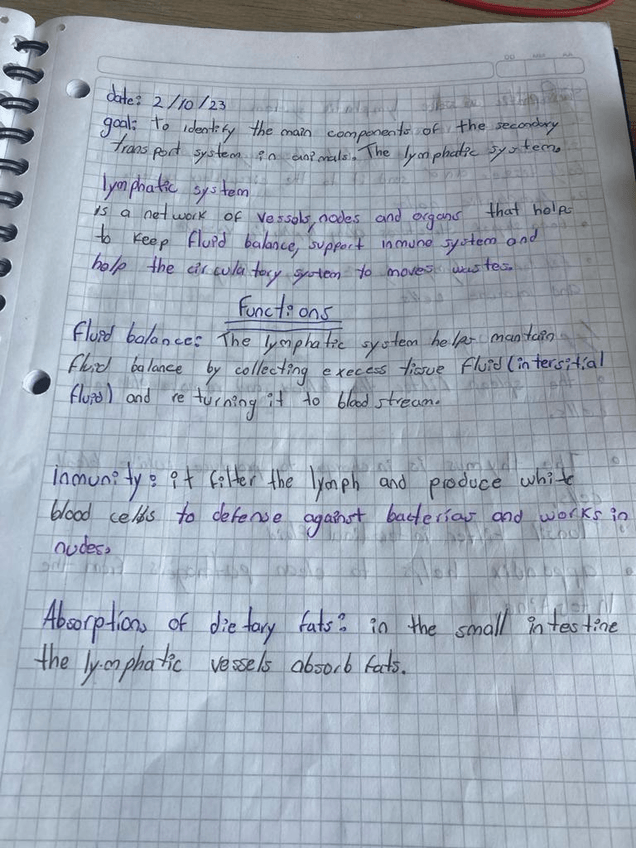 date: 2/10/23
goal: To identify the main components of the secondary
transport system in animals. The lymphatic system.
lymphatic system
is a network of vessels, nodes and organs that helps
to keep fluid balance, support inmune system and
help the circulatory system to moves wastes.
Functions
Fluid balance: The lymphatic system helps mantain
fluid balance by collecting execess tissue fluid (intersitial
fluid) and returning it to blood stream.
Inmunity: it filter the lymph and produce white
blood cells to defense against bacterias and works in
nudes.
Absorptions of dietary fats: in the small intestine
the lymphatic vessels absorb fats.